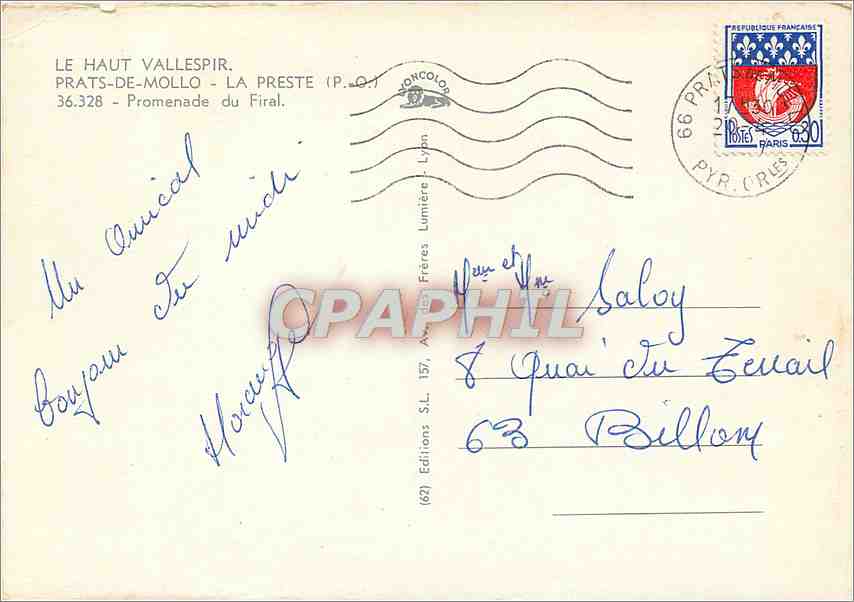 LE HAUT VALLESPIR.
PRATS-DE-MOLLO - LA PRESTE (P.-O.)
36.328 - Promenade du Firal.
LYONCOLOR
REPUBLIQUE FRANÇAISE
POSTES 0,30
PARIS
66 PRATS
17H30
PYR. ORLES
Un amical
bonjour du midi
(62) Editions S.L. 157, Av. des Frères Lumière - Lyon
CPAPHIL
et Saloy
8 Quai du Terrail
63 Billom